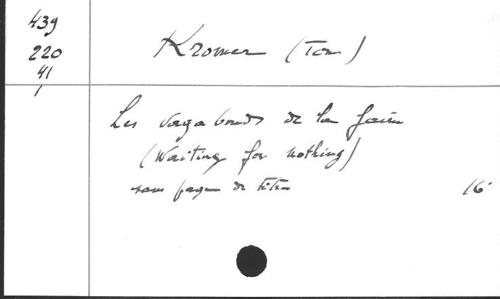 439
220
41
1
Kromer (Tom)
Les vagabonds de la faim
(Waiting for nothing)
sans page de titre
16°